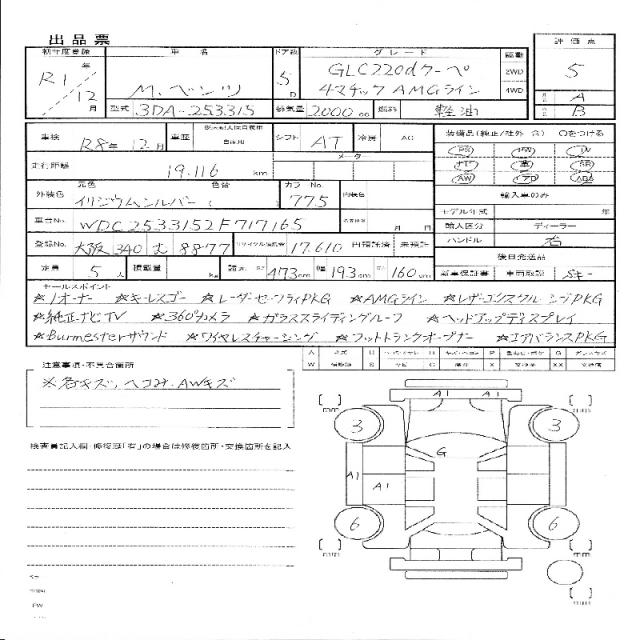 出品票
初年度登録 車名 ドア数 グレード 駆動 評価点
R1年 12月 M.ベンツ 5D GLC220dクーペ 2WD 5
4マチックAMGライン 4WD A
型式 3DA-253315 排気量 2000 cc 燃料 軽油 B
車検 R8年12月 車歴 自家用 シフト AT 冷房 AC 装備品(純正/社外 含) ○をつける
走行距離 19,116 km メーター PS PW AW
外装色 元色 色替 カラーNo. 内装色 輸入車のみ
イリジウムシルバー ( 775 モデル年式 年
車台No. WDC2533152F717165 月 日 輸入区分 ディーラー
登録No. 大阪 340 む 8877 リサイクル預託金 17,610 円 預託済 未預託 ハンドル 右
定員 5人 積載量 kg 諸元 長さ 473cm 幅 193cm 高さ 160cm 後日発送品
新車保証書 車両取説 Sキー
セールスポイント
☆1オーナー ☆キーレスゴー ☆レーダーセーフティPKG ☆AMGライン ☆レザーエクスクルーシブPKG
☆純正ナビTV ☆360°カメラ ☆ガラススライディングルーフ ☆ヘッドアップディスプレイ
☆Burmesterサウンド ☆ワイヤレスチャージング ☆フットトランクオープナー ☆エアバランスPKG
注意事項・不具合箇所
※若キズ、ヘコみ、AWキズ
検査員記入欄・修復歴「有」の場合は修復箇所・交換箇所を記入
A1 A1
3 3
G
A1 A1
6 6